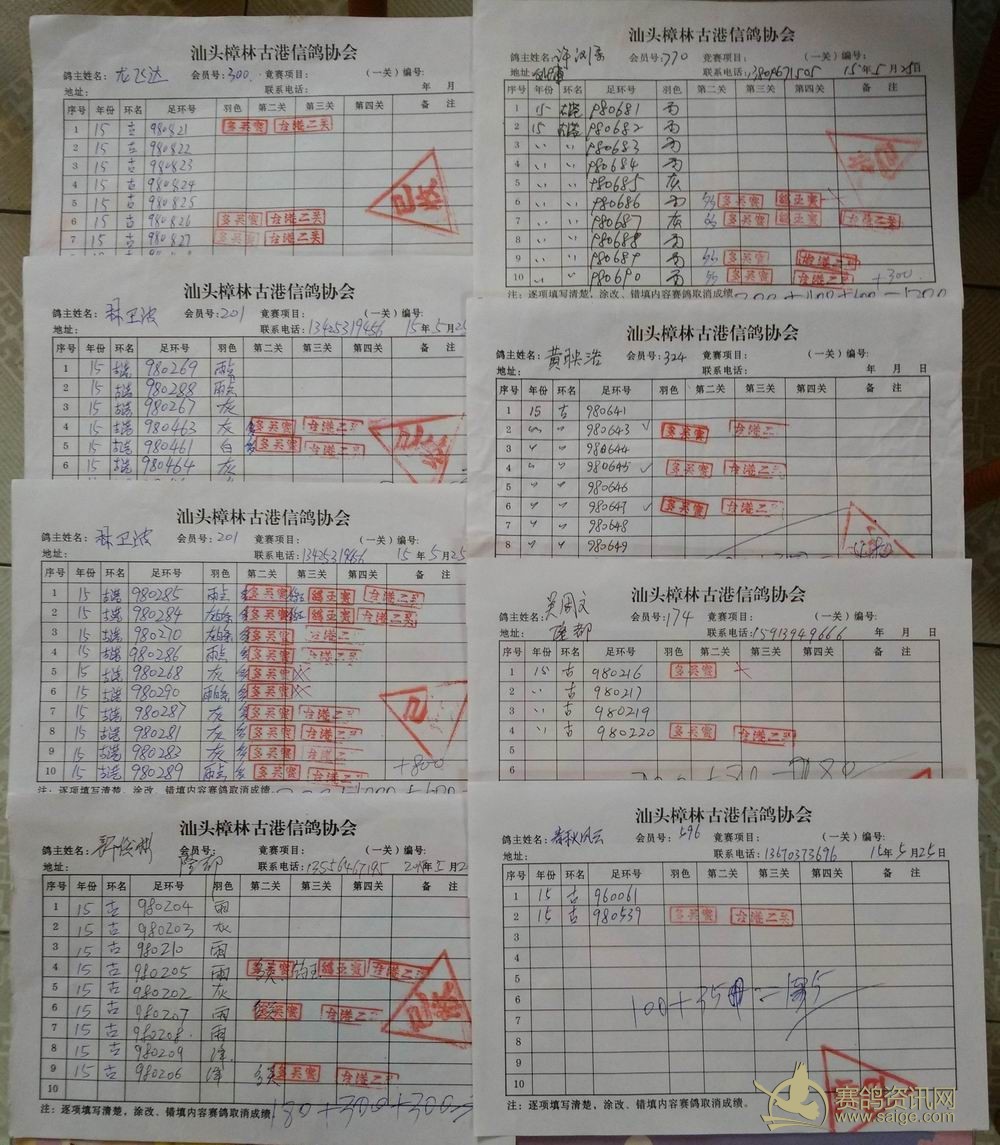 汕头樟林古港信鸽协会
鸽主姓名: 会员号:300 竞赛项目: (一关)编号:
地址: 联系电话: 年 月
序号 年份 环名 足环号 羽色 第二关 第三关 第四关 备 注
1 15 古 980821 多关赛 古港二关
2 15 古 980822
3 15 古 980823
4 15 古 980824
5 15 古 980825
6 15 古 980826 多关赛 古港二关
7 15 古 980827 多关赛 古港二关
汕头樟林古港信鸽协会
鸽主姓名:林卫波 会员号:201 竞赛项目: (一关)编号:
地址: 联系电话:13425319456 15年5月25
序号 年份 环名 足环号 羽色 第二关 第三关 第四关 备 注
1 15 古港 980269 雨点
2 15 古港 980288 雨点
3 15 古港 980267 灰
4 15 古港 980463 灰 多关赛 古港二关
5 15 古港 980461 白 多关赛 古港二关
6 15 古港 980464 灰
汕头樟林古港信鸽协会
鸽主姓名:林卫波 会员号:201 竞赛项目: (一关)编号:
地址: 联系电话:13425319456 15年5月25
序号 年份 环名 足环号 羽色 第二关 第三关 第四关 备 注
1 15 古港 980285 雨点 多关赛 鸽王赛 古港二关
2 15 古港 980284 多关赛 鸽王赛 古港二关
3 15 古港 980270 多关赛 古港二关
4 15 古港 980286 雨点 多关赛 古港二关
5 15 古港 980268 灰 多关赛
6 15 古港 980290 多关赛
7 15 古港 980287 灰 多关赛 古港二关
8 15 古港 980281 灰 多关赛 古港二关
9 15 古港 980283 灰 多关赛 古港二关
10 15 古港 980289 雨点 多关赛 古港二关 +800
注:逐项填写清楚,涂改、错填内容赛鸽取消成绩.
汕头樟林古港信鸽协会
鸽主姓名: 会员号: 竞赛项目: (一关)编号:
地址: 隆都 联系电话:13556467195 年5月2
序号 年份 环名 足环号 羽色 第二关 第三关 第四关 备 注
1 15 古 980204 雨
2 15 古 980203 灰
3 15 古 980210 雨
4 15 古 980205 雨 多关赛 鸽王赛 古港二关
5 15 古 980202 灰
6 15 古 980207 雨 多关赛 古港二关
7 15 古 980208 雨
8 15 古 980209
9 15 古 980206 多关赛 古港二关
10
注:逐项填写清楚,涂改、错填内容赛鸽取消成绩. 180+300+300
汕头樟林古港信鸽协会
鸽主姓名: 会员号:770 竞赛项目: (一关)编号:
地址: 联系电话:13809671505 15年5月25日
序号 年份 环名 足环号 羽色 第二关 第三关 第四关 备 注
1 15 古港 980681 雨
2 15 古港 980682 雨
3 〃 〃 980683 雨
4 〃 〃 980684 雨
5 〃 〃 980685 灰
6 〃 〃 980686 雨 多关赛 鸽王赛
7 〃 〃 980687 灰 多关赛 鸽王赛 古港二关
8 〃 〃 980688 雨
9 〃 〃 980689 雨 多关赛 古港二关
10 〃 〃 980690 雨 多关赛 古港二关 +300
注:逐项填写清楚,涂改、错填内容赛鸽取消成绩.
汕头樟林古港信鸽协会
鸽主姓名:黄映浩 会员号:324 竞赛项目: (一关)编号:
地址: 联系电话: 年 月 日
序号 年份 环名 足环号 羽色 第二关 第三关 第四关 备 注
1 15 古 980641
2 〃 〃 980643 ✓ 多关赛 古港二关
3 〃 〃 980644
4 〃 〃 980645 ✓ 多关赛 古港二关
5 〃 〃 980646
6 〃 〃 980647 ✓ 多关赛 古港二关
7 〃 〃 980648
8 〃 〃 980649
汕头樟林古港信鸽协会
鸽主姓名: 会员号:174 竞赛项目: (一关)编号:
地址: 隆都 联系电话:15913949666 年 月 日
序号 年份 环名 足环号 羽色 第二关 第三关 第四关 备 注
1 15 古 980216 多关赛
2 〃 古 980217
3 〃 古 980219
4 〃 古 980220 多关赛 古港二关
5
6
汕头樟林古港信鸽协会
鸽主姓名:春秋风云 会员号:596 竞赛项目: (一关)编号:
地址: 联系电话:13670373696 15年5月25日
序号 年份 环名 足环号 羽色 第二关 第三关 第四关 备 注
1 15 古 960061
2 15 古 980539 多关赛 古港二关
3
4
5
6
7
8
9
10
注:逐项填写清楚,涂改、错填内容赛鸽取消成绩.
赛鸽资讯网
www.saige.com